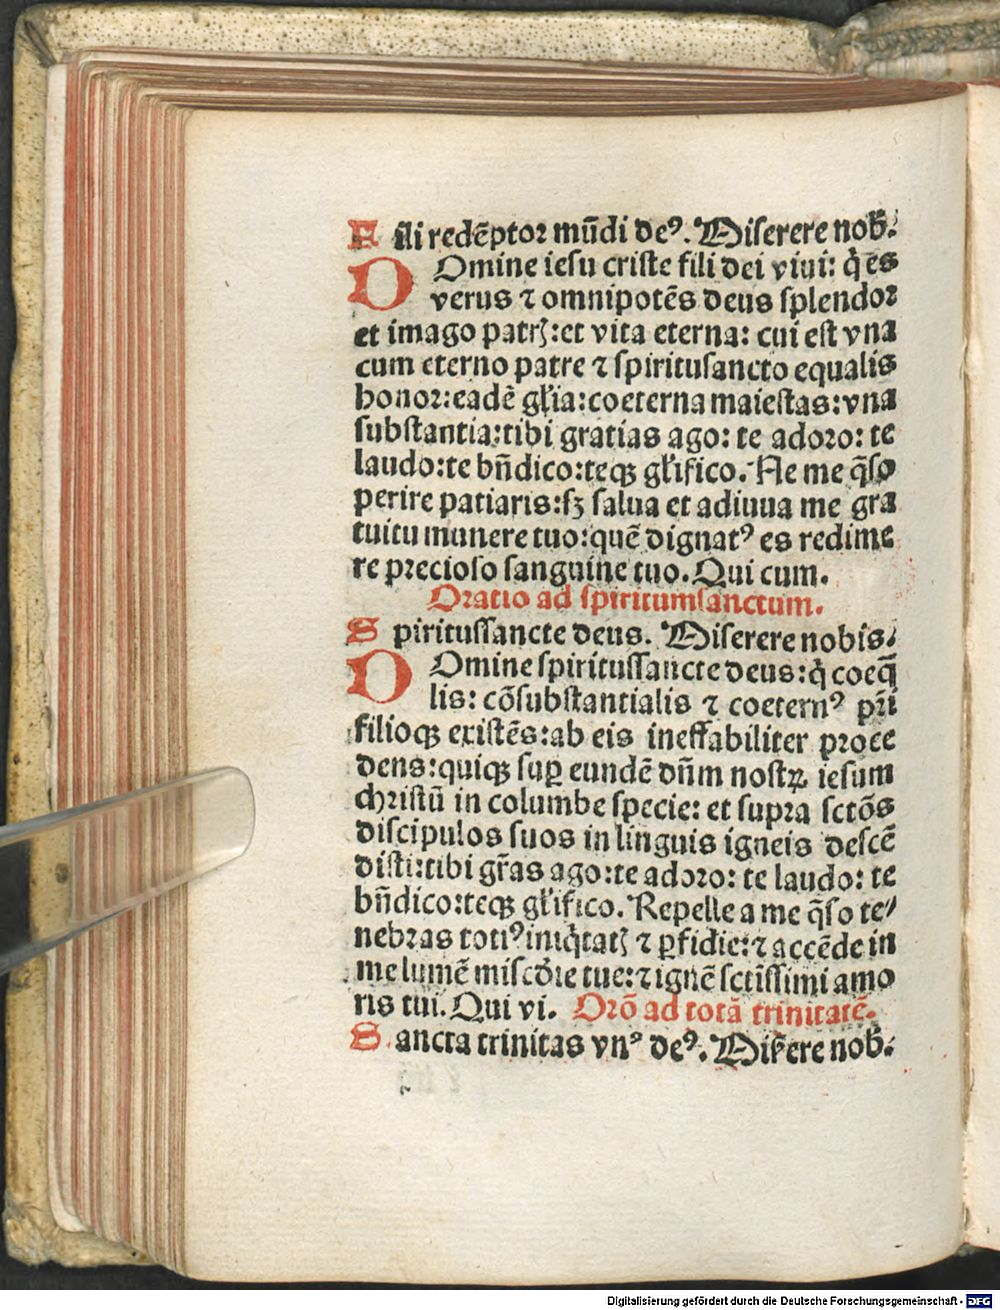 Fili redēptor mūdi deꝰ. Miserere nob̄.
Domine iesu criste fili dei viui: q̇ es
verus ⁊ omnipotēs deus splendor
et imago patrꝫ: et vita eterna: cui est vna
cum eterno patre ⁊ spiritusancto equalis
honor: eadē gl̄ia: coeterna maiestas: vna
substantia: tibi gratias ago: te adoro: te
laudo: te bn̄dico: teqꝫ gl̄ifico. Ne me q̄so
perire patiaris: sꝫ salua et adiuua me gra
tuitu munere tuo: quē dignatꝰ es redime
re precioso sanguine tuo. Qui cum.
Oratio ad spiritumsanctum.
Spiritussancte deus. Miserere nobis.
Domine spiritussancte deus: q̇ coeq̄
lis: cōsubstantialis ⁊ coeternꝰ pr̄i
filioqꝫ existēs: ab eis ineffabiliter proce
dens: quiqꝫ suꝑ eundē dn̄m nostꝝ iesum
christū in columbe specie: et supra sctōs
discipulos suos in linguis igneis descē
disti: tibi gr̄as ago: te adoro: te laudo: te
bn̄dico: teqꝫ gl̄ifico. Repelle a me q̄so te/
nebras totiꝰ iniq̇tatꝫ ⁊ ꝑfidie: ⁊ accēde in
me lumē miscd̄ie tue: ⁊ ignē sctissimi amo
ris tui. Qui vi. Orō ad totā trinitatē.
Sancta trinitas vnꝰ deꝰ. Mis̄ere nob̄.
Digitalisierung gefördert durch die Deutsche Forschungsgemeinschaft - DFG